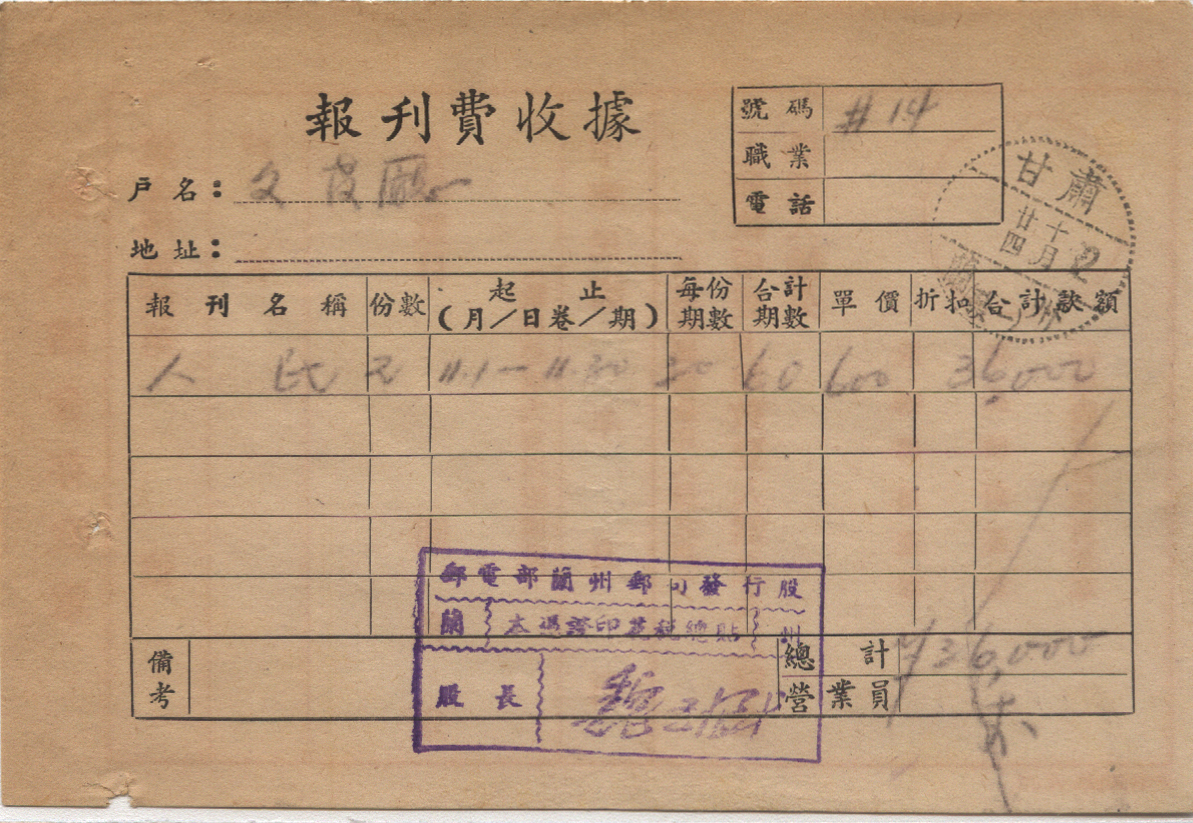 報刊費收據
號碼 #14
職業
戶名：文
電話
地址：
甘肅
廿四 十月 2
蘭州
報刊名稱 份數 起止(月／日卷／期) 每份期數 合計期數 單價 折扣 合計款額
人民 2 11.1－11.30 30 60 600 36,000
郵電部蘭州郵 發行股
蘭 本憑證印花稅總貼 州
備考 總計 36,000
股長 魏
營業員